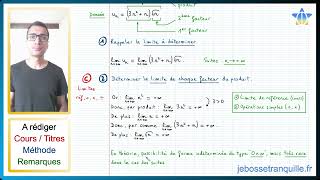 produit
Donnée
uₙ = (3n⁴ + n)√n
2ème facteur
1er facteur
① Rappeler la limite à déterminer.
lim uₙ = lim (3n⁴ + n)√n.
n→+∞
② Déterminer la limite de chaque facteur du produit.
Limites
réf., o, x, ÷
Or : lim n⁴ = +∞
3 > 0
Donc, par produit : lim 3n⁴ = +∞
De plus : lim n = +∞
Donc, par somme : lim (3n⁴ + n) = +∞
De plus : lim √n = +∞
Limite de référence (cours)
Opérations simples
En théorie, possibilité de forme indéterminée du type 0×∞, mais très rare
dans le cas des suites
A rédiger
Cours / Titres
Méthode
Remarques
jebossetranquille.fr